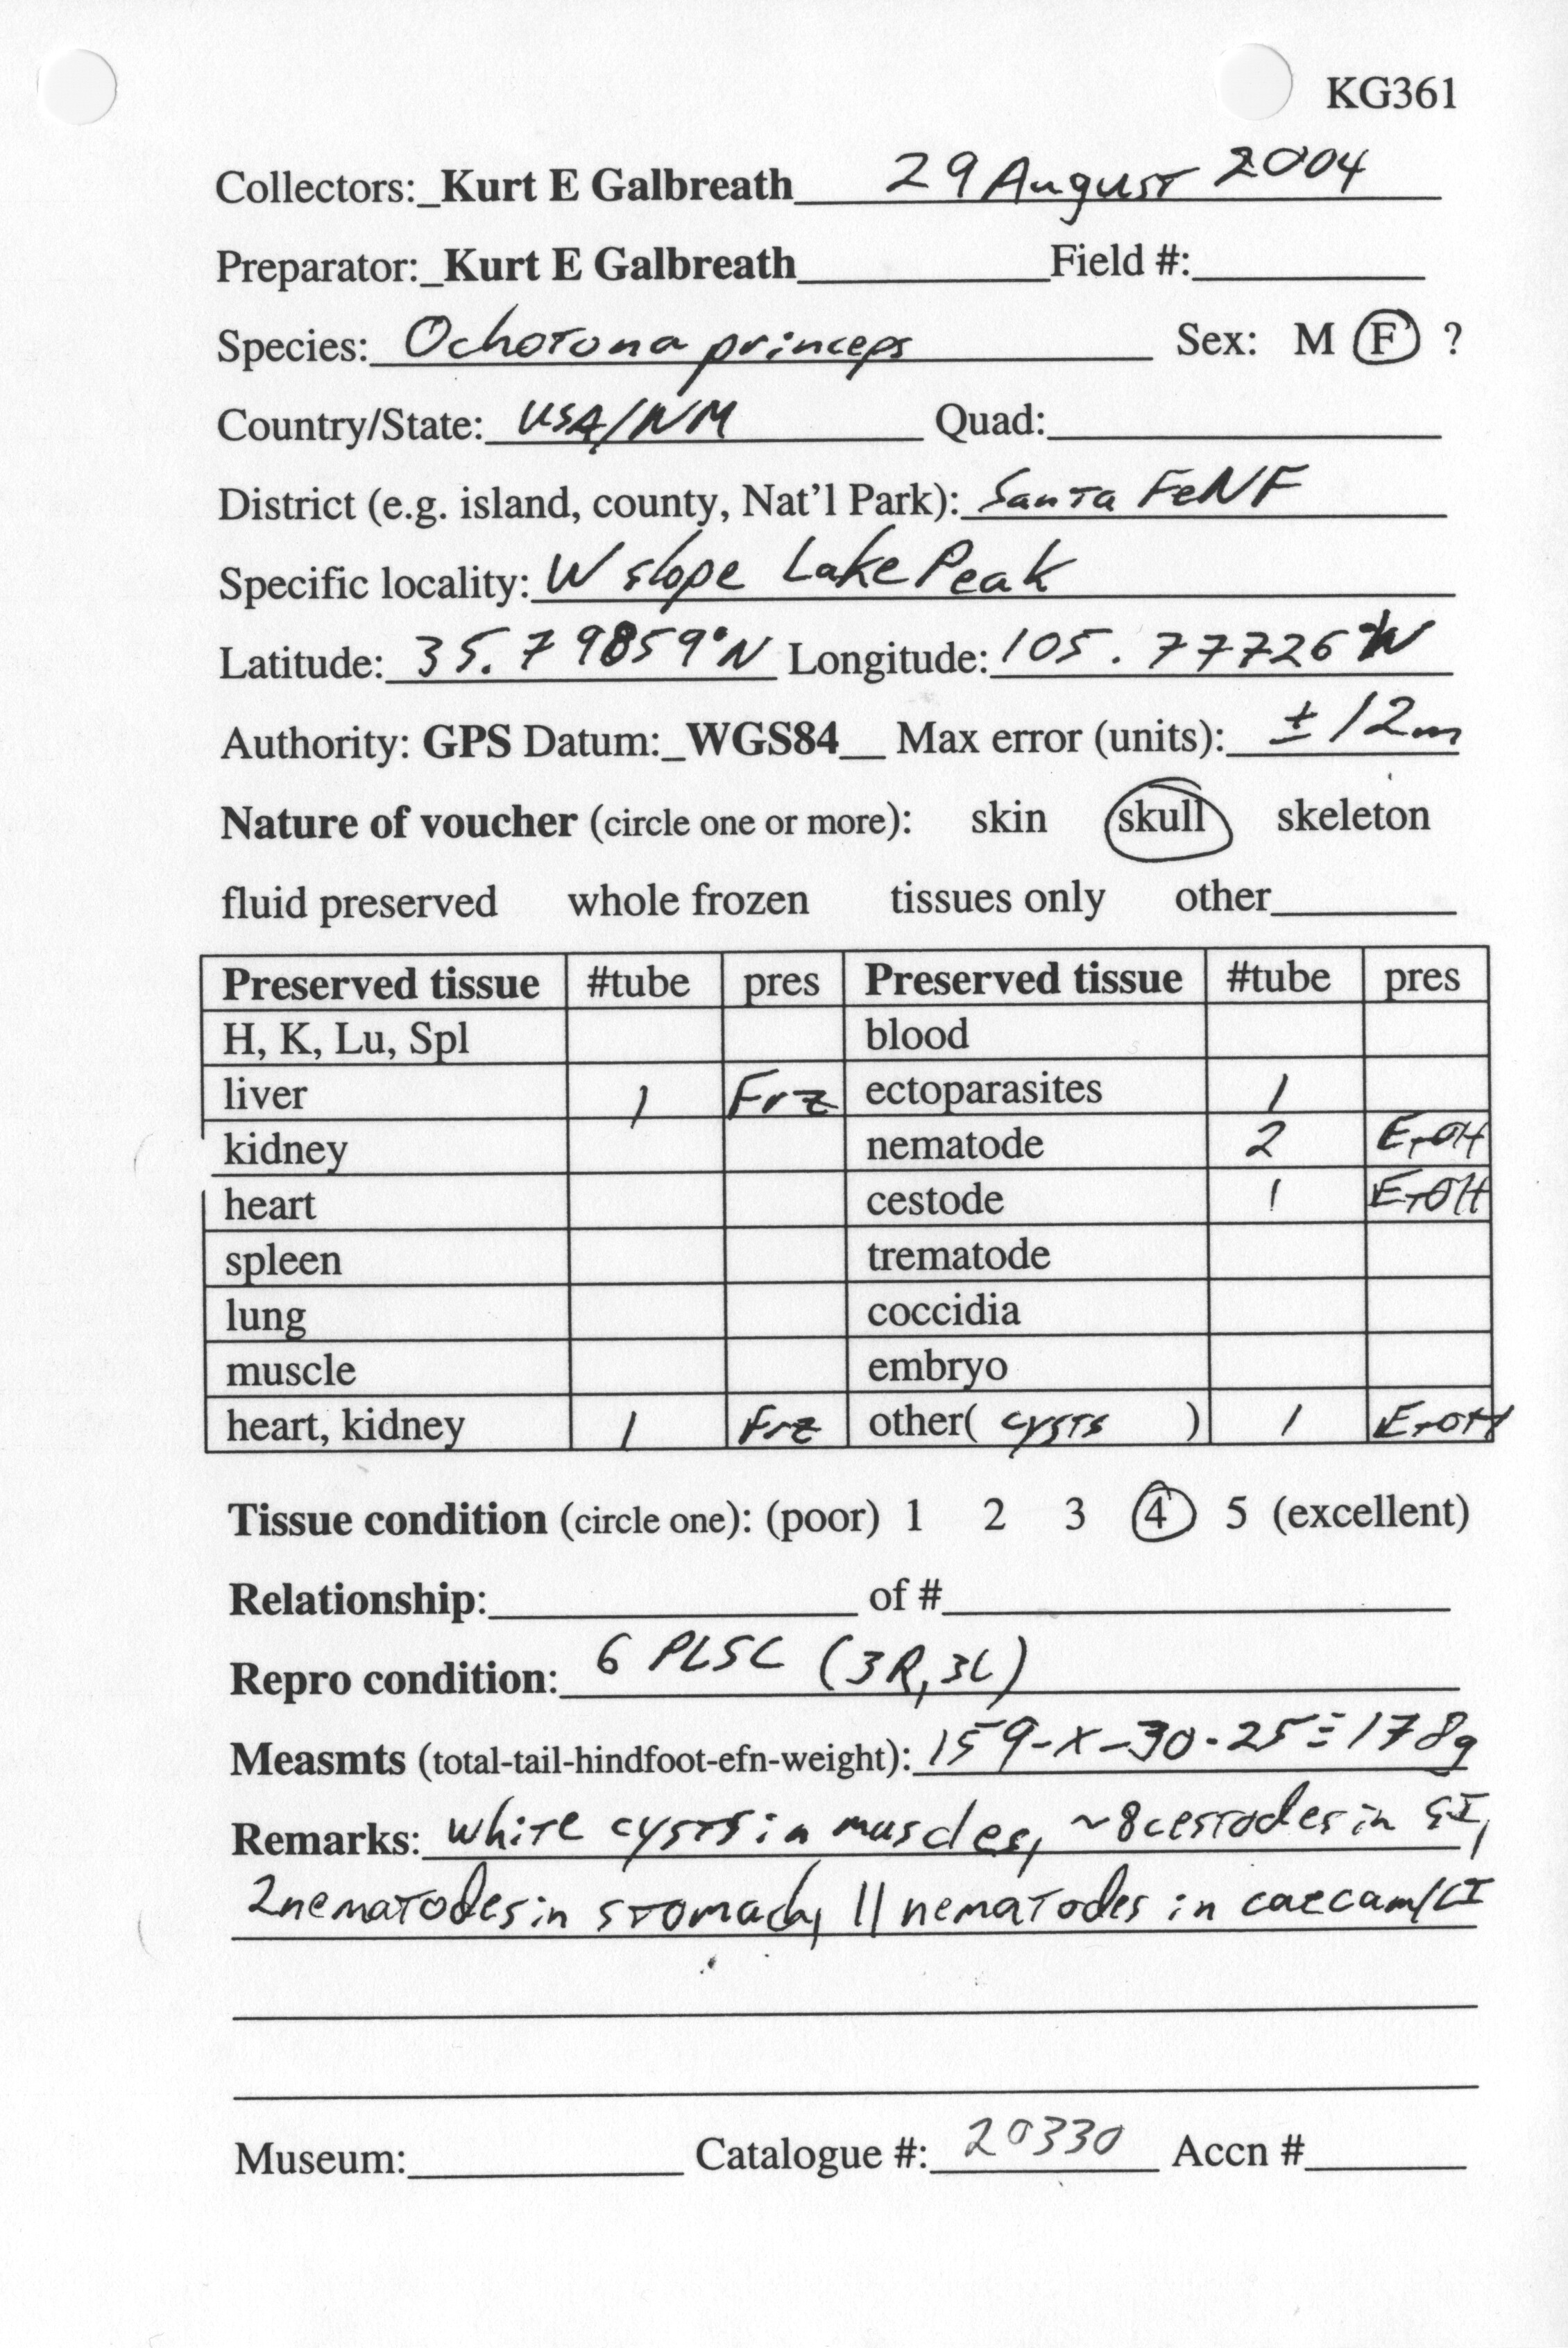 KG361
Collectors:_Kurt E Galbreath 29 August 2004
Preparator:_Kurt E Galbreath Field #:
Species: Ochotona princeps Sex: M F ?
Country/State: USA/NM Quad:
District (e.g. island, county, Nat'l Park): Santa Fe NF
Specific locality: W slope Lake Peak
Latitude: 35.79859°N Longitude: 105.77726°W
Authority: GPS Datum:_WGS84__ Max error (units): ± 12m
Nature of voucher (circle one or more): skin skull skeleton
fluid preserved whole frozen tissues only other
Preserved tissue #tube pres Preserved tissue #tube pres
H, K, Lu, Spl blood
liver 1 Frz ectoparasites 1
kidney nematode 2 EtOH
heart cestode 1 EtOH
spleen trematode
lung coccidia
muscle embryo
heart, kidney 1 Frz other( cysts ) 1 EtOH
Tissue condition (circle one): (poor) 1 2 3 4 5 (excellent)
Relationship: of #
Repro condition: 6 PLSC (3R, 3L)
Measmts (total-tail-hindfoot-efn-weight): 159-X-30-25≡178g
Remarks: white cysts in muscles, ~8 cestodes in SI,
2 nematodes in stomach, 11 nematodes in caecam/LI
Museum: Catalogue #: 20330 Accn #